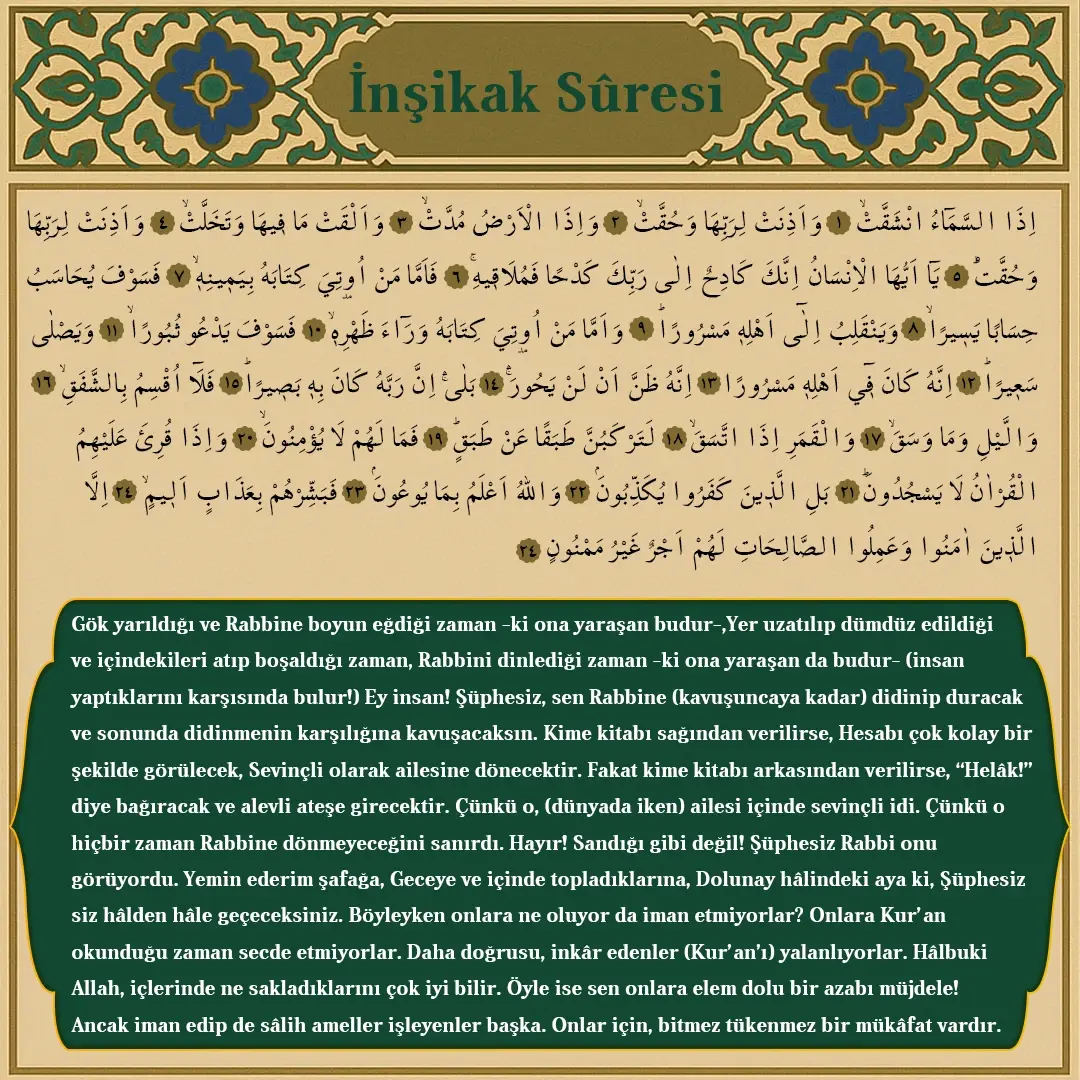 İnşikak Sûresi
اِذَا السَّمَٓاءُ انْشَقَّتْۙ ﴿١﴾ وَاَذِنَتْ لِرَبِّهَا وَحُقَّتْۙ ﴿٢﴾ وَاِذَا الْاَرْضُ مُدَّتْۙ ﴿٣﴾ وَاَلْقَتْ مَا ف۪يهَا وَتَخَلَّتْۙ ﴿٤﴾ وَاَذِنَتْ لِرَبِّهَا
وَحُقَّتْۜ ﴿٥﴾ يَٓا اَيُّهَا الْاِنْسَانُ اِنَّكَ كَادِحٌ اِلٰى رَبِّكَ كَدْحًا فَمُلَاق۪يهِۚ ﴿٦﴾ فَاَمَّا مَنْ اُو۫تِيَ كِتَابَهُ بِيَم۪ينِه۪ۙ ﴿٧﴾ فَسَوْفَ يُحَاسَبُ
حِسَابًا يَس۪يرًاۙ ﴿٨﴾ وَيَنْقَلِبُ اِلٰٓى اَهْلِه۪ مَسْرُورًاۜ ﴿٩﴾ وَاَمَّا مَنْ اُو۫تِيَ كِتَابَهُ وَرَٓاءَ ظَهْرِه۪ۙ ﴿١٠﴾ فَسَوْفَ يَدْعُو ثُبُورًاۙ ﴿١١﴾ وَيَصْلٰى
سَع۪يرًاۜ ﴿١٢﴾ اِنَّهُ كَانَ ف۪ٓي اَهْلِه۪ مَسْرُورًا ﴿١٣﴾ اِنَّهُ ظَنَّ اَنْ لَنْ يَحُورَۚۛ ﴿١٤﴾ بَلٰىۚۛ اِنَّ رَبَّهُ كَانَ بِه۪ بَص۪يرًاۜ ﴿١٥﴾ فَلَٓا اُقْسِمُ بِالشَّفَقِۙ ﴿١٦﴾
وَالَّيْلِ وَمَا وَسَقَۙ ﴿١٧﴾ وَالْقَمَرِ اِذَا اتَّسَقَۙ ﴿١٨﴾ لَتَرْكَبُنَّ طَبَقًا عَنْ طَبَقٍۜ ﴿١٩﴾ فَمَا لَهُمْ لَا يُؤْمِنُونَۙ ﴿٢٠﴾ وَاِذَا قُرِئَ عَلَيْهِمُ
الْقُرْاٰنُ لَا يَسْجُدُونَۜ ﴿٢١﴾ بَلِ الَّذ۪ينَ كَفَرُوا يُكَذِّبُونَۘ ﴿٢٢﴾ وَاللّٰهُ اَعْلَمُ بِمَا يُوعُونَۘ ﴿٢٣﴾ فَبَشِّرْهُمْ بِعَذَابٍ اَل۪يمٍۙ ﴿٢٤﴾ اِلَّا
الَّذ۪ينَ اٰمَنُوا وَعَمِلُوا الصَّالِحَاتِ لَهُمْ اَجْرٌ غَيْرُ مَمْنُونٍ ﴿٢٤﴾
Gök yarıldığı ve Rabbine boyun eğdiği zaman -ki ona yaraşan budur-,Yer uzatılıp dümdüz edildiği
ve içindekileri atıp boşaldığı zaman, Rabbini dinlediği zaman -ki ona yaraşan da budur- (insan
yaptıklarını karşısında bulur!) Ey insan! Şüphesiz, sen Rabbine (kavuşuncaya kadar) didinip duracak
ve sonunda didinmenin karşılığına kavuşacaksın. Kime kitabı sağından verilirse, Hesabı çok kolay bir
şekilde görülecek, Sevinçli olarak ailesine dönecektir. Fakat kime kitabı arkasından verilirse, “Helâk!”
diye bağıracak ve alevli ateşe girecektir. Çünkü o, (dünyada iken) ailesi içinde sevinçli idi. Çünkü o
hiçbir zaman Rabbine dönmeyeceğini sanırdı. Hayır! Sandığı gibi değil! Şüphesiz Rabbi onu
görüyordu. Yemin ederim şafağa, Geceye ve içinde topladıklarına, Dolunay hâlindeki aya ki, Şüphesiz
siz hâlden hâle geçeceksiniz. Böyleyken onlara ne oluyor da iman etmiyorlar? Onlara Kur’an
okunduğu zaman secde etmiyorlar. Daha doğrusu, inkâr edenler (Kur’an’ı) yalanlıyorlar. Hâlbuki
Allah, içlerinde ne sakladıklarını çok iyi bilir. Öyle ise sen onlara elem dolu bir azabı müjdele!
Ancak iman edip de sâlih ameller işleyenler başka. Onlar için, bitmez tükenmez bir mükâfat vardır.